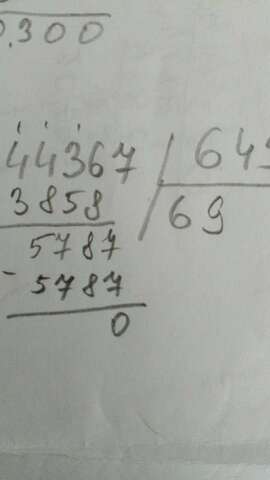 0.300
44367 643
3858 69
5787
- 5787
0